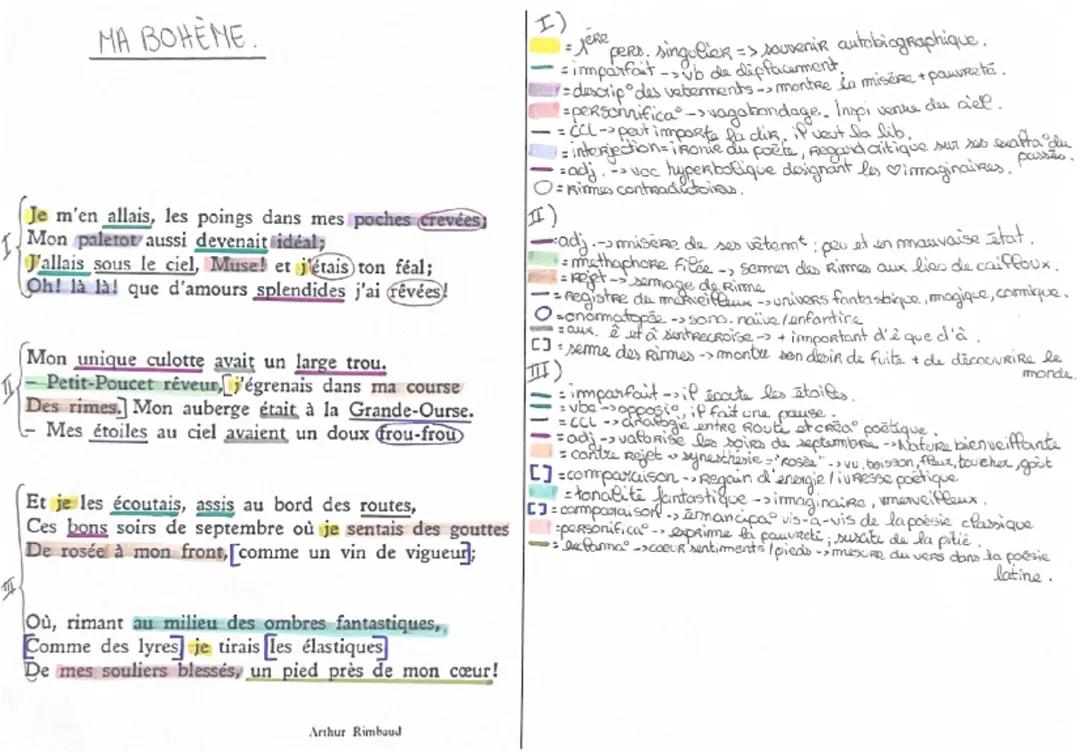 MA BOHÈME.
I
Je m'en allais, les poings dans mes poches crevées;
Mon paletot aussi devenait idéal;
J'allais sous le ciel, Muse! et j'étais ton féal;
Oh! là là! que d'amours splendides j'ai rêvées!
II
Mon unique culotte avait un large trou.
– Petit-Poucet rêveur, [j'égrenais dans ma course
Des rimes.] Mon auberge était à la Grande-Ourse.
– Mes étoiles au ciel avaient un doux frou-frou
III
Et je les écoutais, assis au bord des routes,
Ces bons soirs de septembre où je sentais des gouttes
De rosée à mon front, [comme un vin de vigueur];
Où, rimant au milieu des ombres fantastiques,
[Comme des lyres] je tirais [les élastiques]
De mes souliers blessés, un pied près de mon cœur!
Arthur Rimbaud
I)
= 1ère pers. singulier => souvenir autobiographique.
= imparfait -> vb de déplacement.
= descrip° des vetements -> montre la misère + pauvreté.
= personnifica° -> vagabondage. Inspi venue du ciel.
= CCL -> peut importe la dir, il veut la lib.
= interjection = ironie du poète, regard critique sur ses exalta° du passées.
= adj. -> voc hyperbolique designant les ♡ immaginaires.
= Rimes contradictoires.
II)
= adj. -> misère de ses vêtemt : peu et en mauvaise état.
= methaphore filée -> semer des Rimes aux lieu de cailloux.
= rejet -> semage de Rime
= registre du merveilleux -> univers fantastique, magique, cosmique.
= onomatopée -> sons. naïve/enfantine
= aux. ê et â sentrecroise -> + important d'ê que d'â.
[] = seme des Rimes -> montre son desir de fuite + de découvrire le monde.
III)
= imparfait -> il écoute les étoiles.
= vbe -> opposi°, il fait une pause.
= CCL -> analogie entre Route et créa° poétique.
= adj -> valorise les soirs de septembre -> Nature bienveillante
= contre rejet synesthésie = "rosée" -> vu, boisson, fleur, toucher, goût
[] = comparaison -> Regain d'énergie / ivresse poétique
= tonalité fantastique -> immaginaire, merveilleux.
[] = comparaison -> émancipa° vis-à-vis de la poésie classique
= personnifica° -> exprime la pauvreté, suscite de la pitié.
= -> coeur sentiments / pieds -> mesure du vers dans la poésie latine.